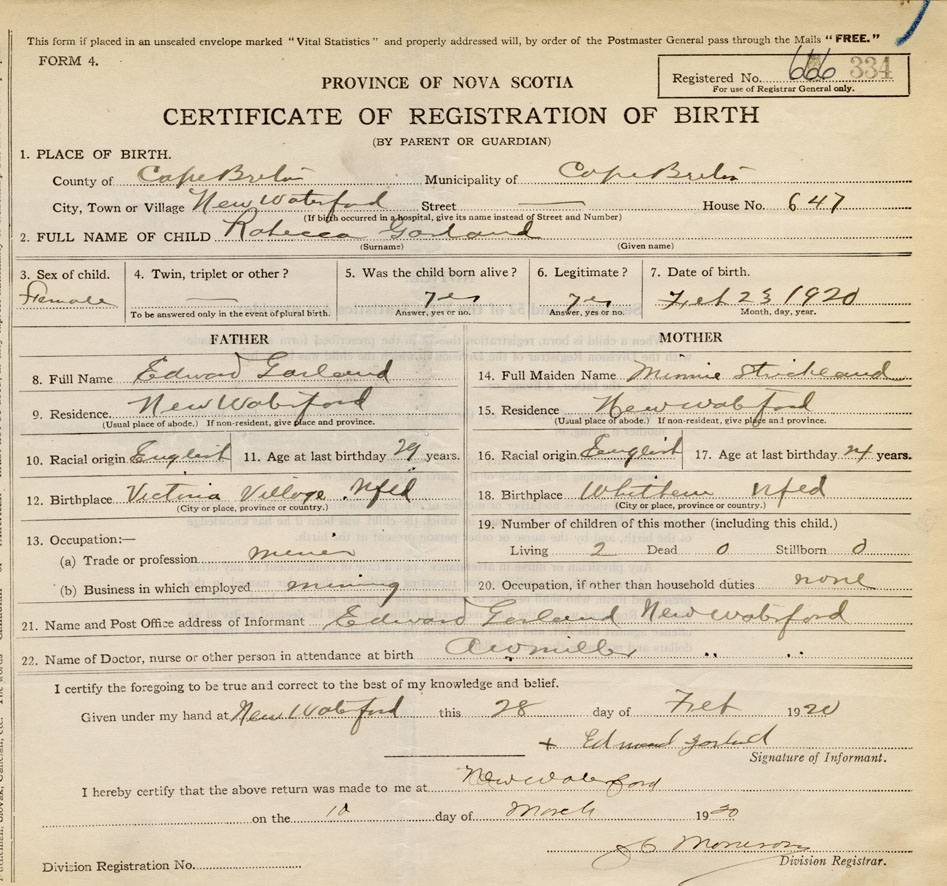 This form if placed in an unsealed envelope marked "Vital Statistics" and properly addressed will, by order of the Postmaster General pass through the Mails "FREE."
FORM 4.
Registered No. 666 334
For use of Registrar General only.
PROVINCE OF NOVA SCOTIA
CERTIFICATE OF REGISTRATION OF BIRTH
(BY PARENT OR GUARDIAN)
1. PLACE OF BIRTH.
County of Cape Breton Municipality of Cape Breton
City, Town or Village New Waterford Street — House No. 647
(If birth occurred in a hospital, give its name instead of Street and Number)
2. FULL NAME OF CHILD Rebecca Garland
(Surname) (Given name)
3. Sex of child. 4. Twin, triplet or other? 5. Was the child born alive? 6. Legitimate? 7. Date of birth.
Female — yes yes Feb 23 1920
To be answered only in the event of plural birth. Answer, yes or no. Answer, yes or no. Month, day, year.
FATHER MOTHER
8. Full Name Edward Garland 14. Full Maiden Name Minnie Strickland
9. Residence New Waterford 15. Residence New Waterford
(Usual place of abode.) If non-resident, give place and province. (Usual place of abode.) If non-resident, give place and province.
10. Racial origin English 11. Age at last birthday 29 years. 16. Racial origin English 17. Age at last birthday 24 years.
12. Birthplace Victoria Village Nfld 18. Birthplace Nfld
(City or place, province or country.) (City or place, province or country.)
19. Number of children of this mother (including this child.)
13. Occupation:—
(a) Trade or profession miner Living 2 Dead 0 Stillborn 0
(b) Business in which employed mining 20. Occupation, if other than household duties none
21. Name and Post Office address of Informant Edward Garland New Waterford
22. Name of Doctor, nurse or other person in attendance at birth " "
I certify the foregoing to be true and correct to the best of my knowledge and belief.
Given under my hand at New Waterford this 28 day of Feb 1920
+ Edward Garland
Signature of Informant.
I hereby certify that the above return was made to me at New Waterford
on the 10 day of March 1920
Morrison
Division Registration No. Division Registrar.